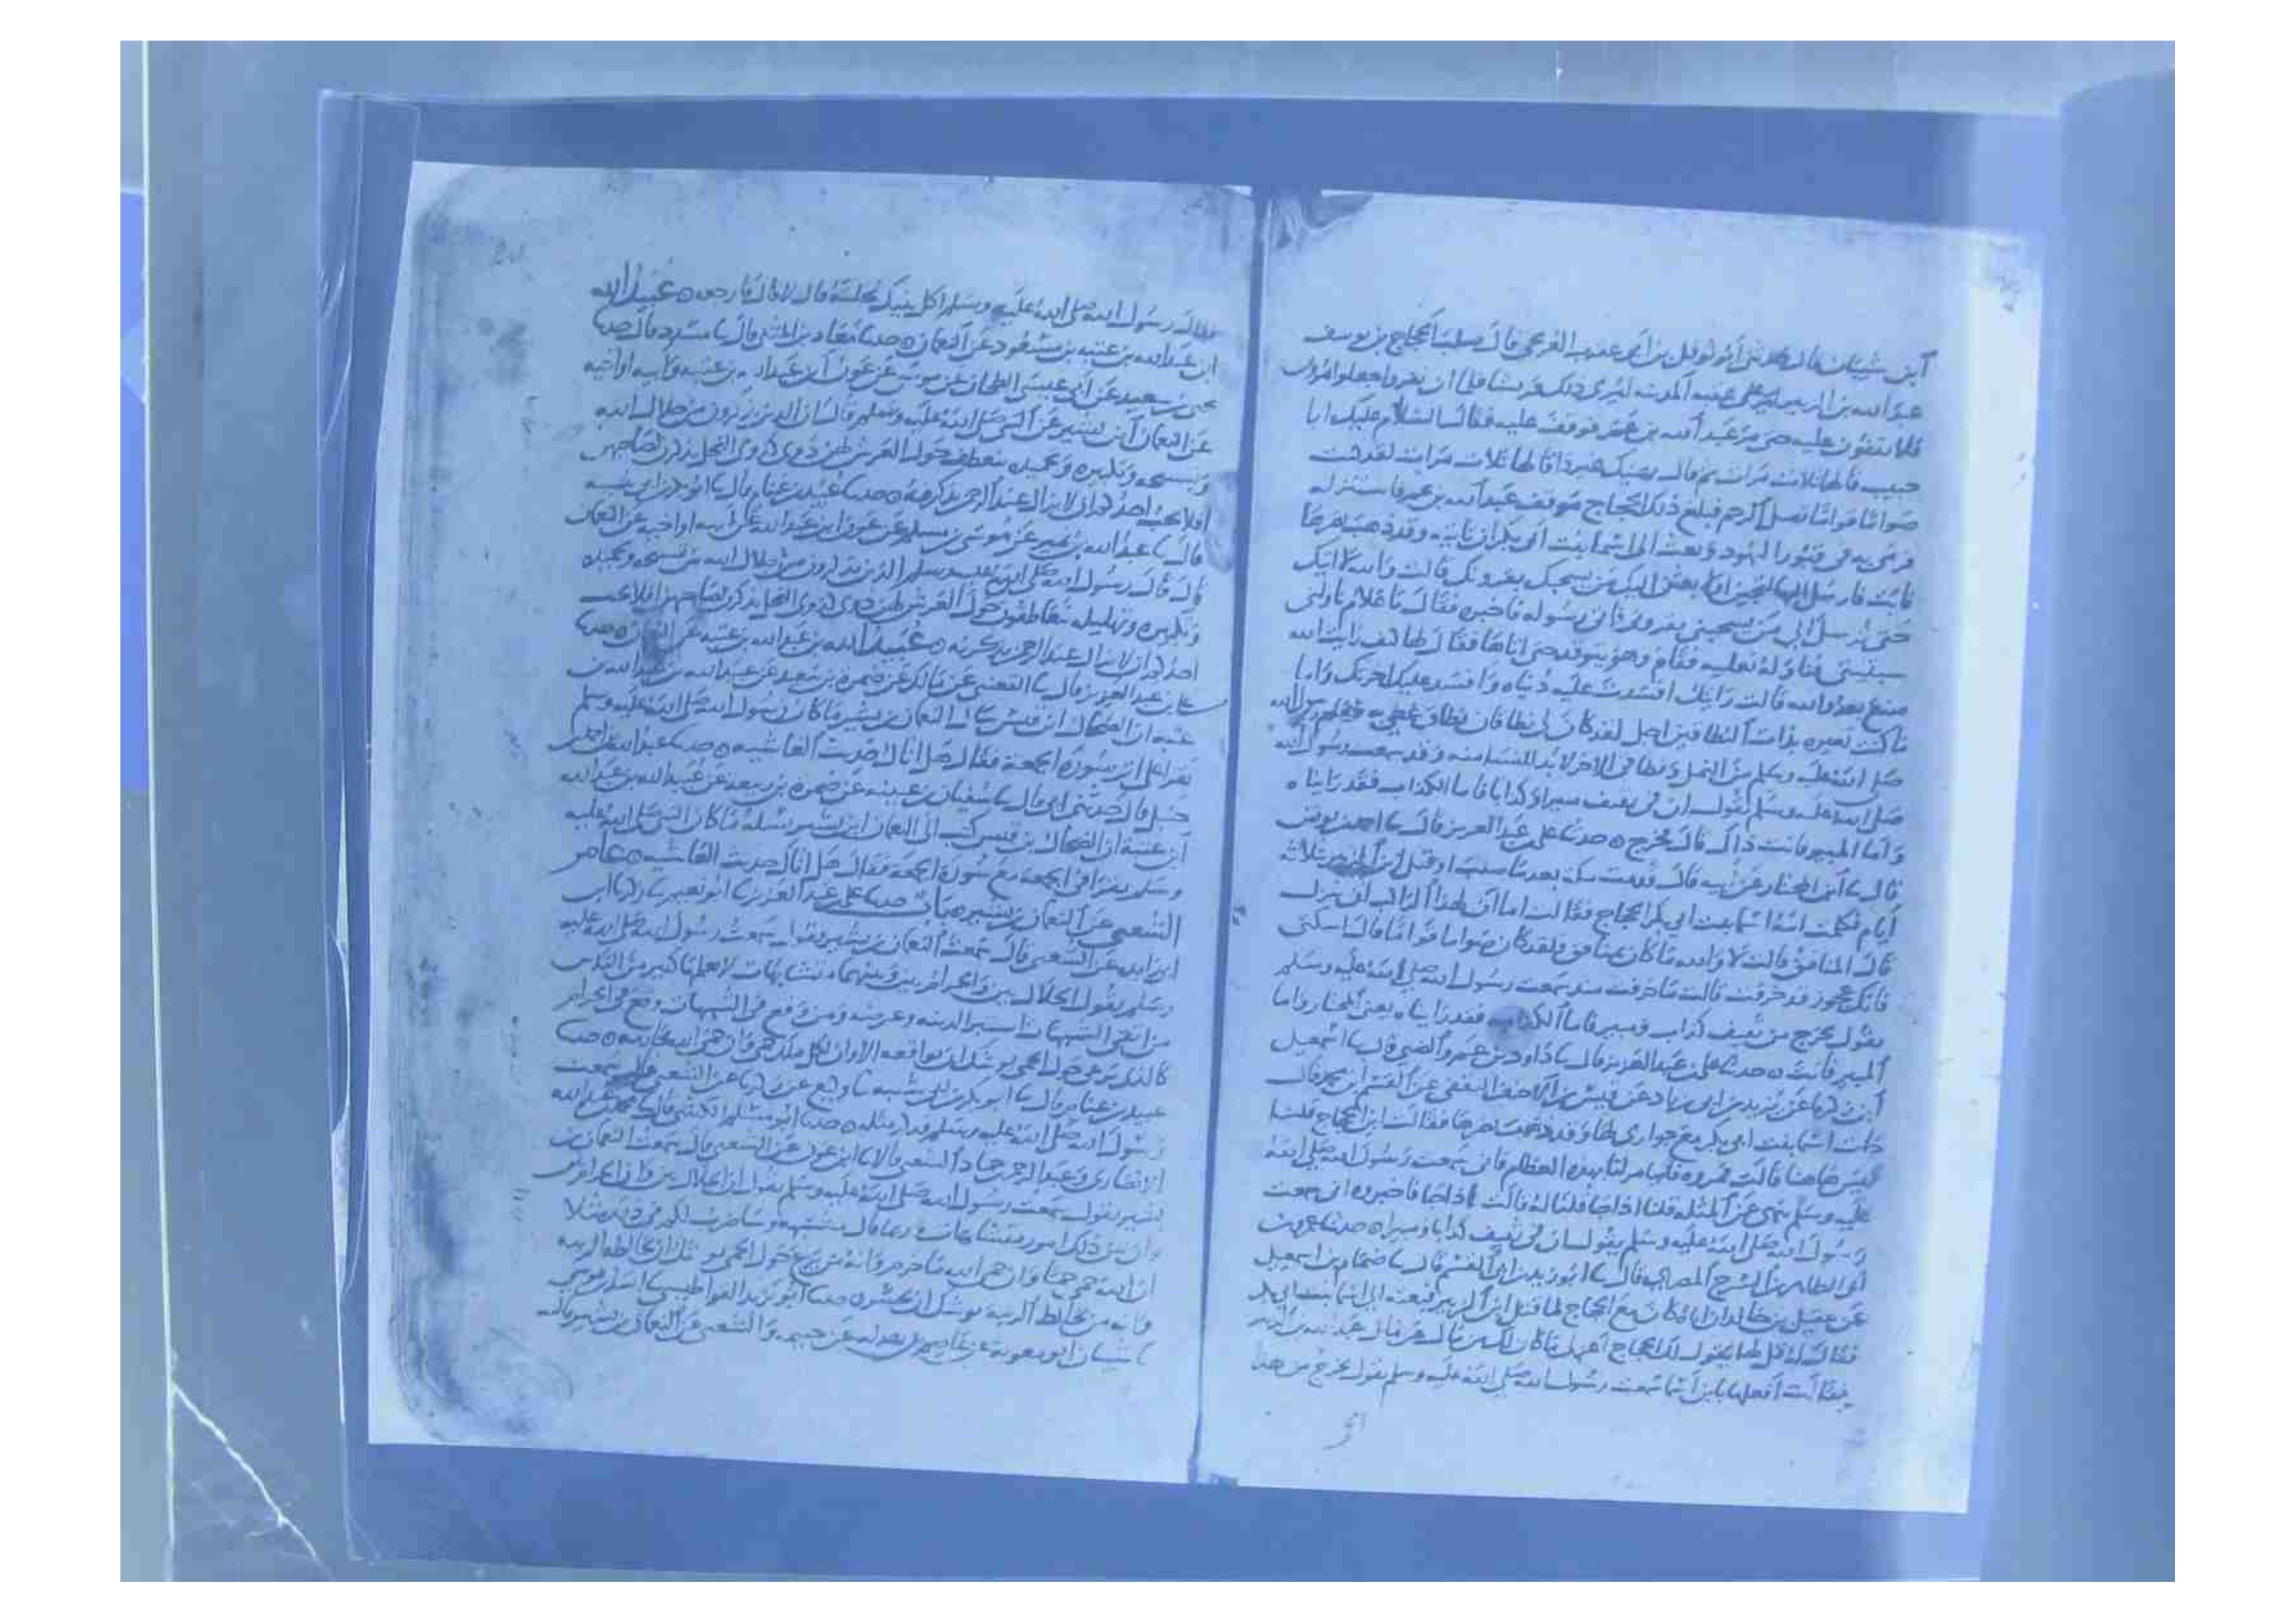 ابن شيبان قال حدثني ابو نوفل بن ابي عقرب العريجي قال صلب الحجاج بن يوسف
عبد الله بن الزبير على عقبه المدينه ليري ذلك قريشا فلما ان نفروا جعلوا يمرون
فلا يقفون عليه حتى مر عبد الله بن عمر فوقف عليه فقال السلام عليك ابا
خبيب قالها ثلاث مرات ثم قال نهيتك عن ذا قالها ثلاث مرات لقد كنت
صواما قواما تصل الرحم فبلغ ذلك الحجاج موقف عبد الله بن عمر فاستنزله
فرمى به في قبور اليهود وبعث الى اسما بنت ابي بكر ان تاتيه وقد ذهب بصرها
فابت فارسل اليها لتجين او لابعثن اليك من يسحبك بقرونك قالت والله لا اتيك
حتى ترسل الي من يسحبني بقروني فاتى رسوله فاخبره فقال يا غلام ناولني
سبتيتي فناوله نعليه فقام وهو يتوقد حتى اتاها فقال لها كيف رايت الله
صنع بعدو الله قالت رايتك افسدت عليه دنياه وافسد عليك اخرتك واما
ما كنت تعيره بذات النطاقين اجل لقد كان لي نطاقان نطاق اغطي به طعام رسول الله
صلى الله عليه وسلم من النمل ونطاقي الاخر لابد للنسا منه وقد سمعت رسول الله
صلى الله عليه وسلم يقول ان في ثقيف مبيرا وكذابا فاما الكذاب فقد رايناه
واما المبير فانت ذاك قال فخرج ه حدثنا علي بن عبد العزيز قال نا احمد بن يونس
قال نا ابو المحياة عن ابيه قال قدمت مكة بعد ما صلب او قتل ابن الزبير بثلاثة
ايام فكلمت امه اسما بنت ابي بكر الحجاج فقالت اما ان لهذا الراكب ان ينزل
قال المنافق قالت لا والله ما كان بمنافق ولقد كان صواما قواما قال اسكتي
فانك عجوز قد خرفت قالت ما خرفت منذ سمعت رسول الله صلى الله عليه وسلم
يقول يخرج من ثقيف كذاب ومبير فاما الكذاب فقد رايناه يعني المختار واما
المبير فانت ه حدثنا علي بن عبد العزيز قال نا داود بن عمرو الضبي قال نا اسمعيل
ابن زكريا عن يزيد بن ابي زياد عن قيس بن الاحنف الثقفي عن القسم بن محمد قال
جات اسما بنت ابي بكر مع جواري لها وقد ذهب بصرها فقالت اين الحجاج قلنا
ليس هاهنا قالت فمروه فليامر لنا بهذه العظام فاني سمعت رسول الله صلى الله
عليه وسلم ينهى عن المثله قلنا اذا جا قلنا له قالت اذا جا فاخبروه اني سمعت
رسول الله صلى الله عليه وسلم يقول ان في ثقيف كذابا ومبيرا ه حدثنا عمرو بن
ابي الطاهر بن السرح المصري قال نا ابو زيد بن ابي الغمر قال نا ضمام بن اسمعيل
عن عقيل بن خالد ان اباه كان مع الحجاج لما قتل ابن الزبير فبعثه الى اسما بنت ابي بكر
فقال له قل لها يقول لك الحجاج
فقالت سمعت رسول الله صلى الله عليه وسلم يقول يخرج من هذا
فقال رسول الله صلى الله عليه وسلم اكل بنيك نحلته قال لا قال فارجعه ه عبيد الله
ابن عبد الله بن عتبه بن مسعود عن النعمان ه حدثنا معاذ بن المثنى قال نا مسدد قال حدثنا
يحيى بن سعيد عن ابي عيسى الطحان عن عون بن عبد الله بن عتبه عن ابيه او اخيه
عن النعمان بن بشير عن النبي صلى الله عليه وسلم قال ان الذين يذكرون من جلال الله
وتسبيحه وتكبيره وتحميده يتعاطف حول العرش لهن دوي كدوي النحل يذكرن لصاحبهن
افلا يحب احدكم ان لا يزال عند الرحمن يذكر به ه حدثنا عبيد بن غنام قال نا ابو بكر بن ابي شيبه
قال نا عبد الله بن نمير عن موسى بن مسلم عن عون بن عبد الله عن ابيه او اخيه عن النعمان
قال قال رسول الله صلى الله عليه وسلم الذين يذكرون من جلال الله من تسبيحه وتحميده
وتكبيره وتهليله يتعاطفون حول العرش لهن دوي كدوي النحل يذكرن لصاحبهن افلا يحب
احدكم ان لا يزال عند الرحمن يذكر به ه عبيد الله بن عبد الله بن عتبه عن النعمان ه حدثنا
علي بن عبد العزيز قال نا القعنبي عن مالك عن ضمره بن سعيد عن عبيد الله بن عبد الله بن
عتبه ان الضحاك بن قيس سال النعمان بن بشير ما كان رسول الله صلى الله عليه وسلم
يقرا على اثر سورة الجمعة فقال هل اتاك حديث الغاشيه ه حدثنا عبد الله بن احمد بن
حنبل قال حدثني ابي قال نا سفيان بن عيينه عن ضمره بن سعيد عن عبيد الله بن عبد الله
ابن عتبة ان الضحاك بن قيس كتب الى النعمان بن بشير يسئله ما كان النبي صلى الله عليه
وسلم يقرا في الجمعة مع سورة الجمعة فقال هل اتاك حديث الغاشيه ه عامر
الشعبي عن النعمان بن بشير حدثنا علي بن عبد العزيز نا ابو نعيم نا زكريا بن
ابي زايده عن الشعبي قال سمعت النعمان بن بشير يقول سمعت رسول الله صلى الله عليه
وسلم يقول الحلال بين والحرام بين وبينهما متشابهات لا يعلمها كثير من الناس
من اتقى الشبهات استبرا لدينه وعرضه ومن وقع في الشبهات وقع في الحرام
كالذي يرعى حول الحمى يوشك ان يواقعه الا وان لكل ملك حمى وان حمى الله محارمه ه حدثنا
عبيد بن غنام قال نا ابو بكر بن ابي شيبه نا وكيع عن زكريا عن الشعبي قال سمعت
رسول الله صلى الله عليه وسلم فذكر مثله ه حدثنا ابو مسلم الكشي قال نا محمد بن عبد الله
الانصاري وعبد الرحمن بن حماد الشعيثي قالا نا ابن عون عن الشعبي قال سمعت النعمان بن
بشير يقول سمعت رسول الله صلى الله عليه وسلم يقول ان الحلال بين وان الحرام بين
وان بين ذلك امور متشابهات وربما قال مشتبهه وساضرب لكم في ذلك مثلا
ان الله حمى حمى وان حمى الله ما حرم وانه من يرع حول الحمى يوشك ان يخالطه الريبه
وانه من يخالط الريبه يوشك ان يجسر ه حدثنا ابو يزيد القراطيسي نا اسد بن موسى
نا شيبان ابو معويه عن عاصم بن بهدله عن خيثمه والشعبي عن النعمان بن بشير قال